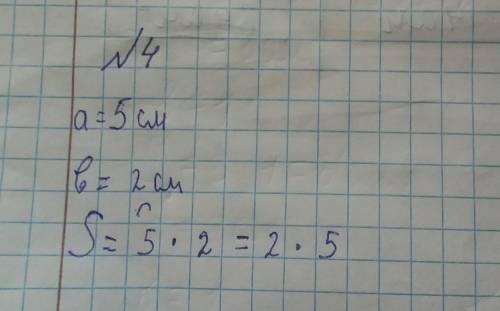 №4
a = 5 см
в = 2 см
S = 5 · 2 = 2 · 5